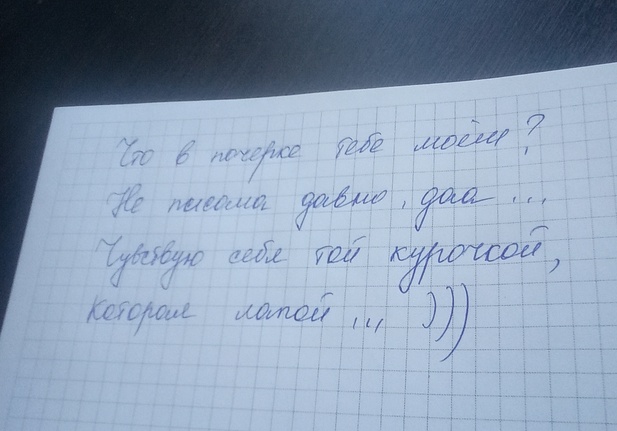 Что в почерке тебе моём?
Не писала давно, даа ...
Чувствую себя той курочкой,
которая лапой ... )))